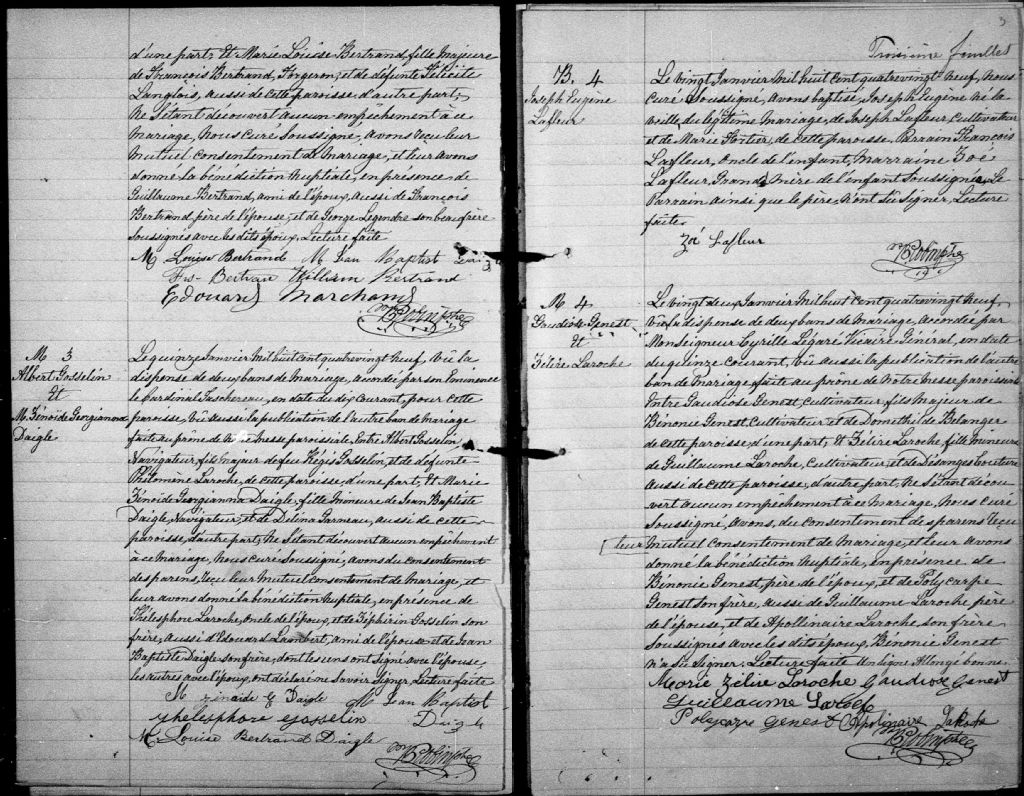 d'une part, Et Marie Louise Bertrand, fille Majeure
de François Bertrand, Forgeron, et de défunte Félicité
Langlois, aussi de cette paroisse, d'autre part,
Ne S'étant découvert Aucun Empêchement à ce
Mariage, Nous Curé Soussigné, avons reçu leur
Mutuel Consentement de Mariage, et leur avons
donné la bénédiction Nuptiale, en présence de
Guillaume Bertrand, ami de l'époux, aussi de François
Bertrand, père de l'épouse, et de George Légendre son beau frère
Soussignés avec les dits époux. Lecture faite
M Louise Bertrand M Jean Baptist
Frs Bertran William Bertrand
Edouard Marchand
M 3
Albert Gosselin
Et
M. Zénoïde Georgianna
Daigle
Le quinze Janvier Mil huit Cent quatre vingt Neuf, Vû la
dispense de deux bans de Mariage, accordée par son Eminence
le Cardinal Taschereau, en date du dix Courant, pour cette
paroisse, Vû aussi la publication de l'autre ban de Mariage
faite au prône de Messe paroissiale, Entre Albert Gosselin,
Navigateur, fils Majeur de feu Régis Gosselin, et de défunte
Philomène Laroche, de cette paroisse, d'une part, Et Marie
Zénoïde Georgianna Daigle, fille Mineure de Jean Baptiste
Daigle, Navigateur, et de Délina Garneau, aussi de cette
paroisse, d'autre part, Ne S'étant découvert aucun empêchement
à ce Mariage, Nous Curé Soussigné, avons du consentement
des parens, reçu leur Mutuel Consentement de Mariage, et
leur avons donné la bénédiction Nuptiale, en présence de
Thélesphore Laroche, Oncle de l'époux, et de Zéphirin Gosselin son
frère, aussi d'Edouard Lambert, ami de l'épouse et de Jean
Baptiste Daigle son frère, dont les uns ont Signé avec l'épouse,
les autres avec l'époux, ont déclaré ne Savoir Signer, Lecture faite
M zinaide G Daigle M Jean Baptist
thelesphore gosselin Daigle
M. Louise Bertrand Daigle
3
Troisième feuillet
B. 4
Joseph Eugène
Lafleur
Le vingt Janvier Mil huit Cent quatre vingt Neuf, Nous
Curé Soussigné, avons baptisé, Joseph Eugène né la
veille, du légitime Mariage, de Joseph Lafleur, Cultivateur
et de Marie Fortier, de cette paroisse. Parrain François
Lafleur, Oncle de l'enfant, Marraine Zoé
Lafleur, Grand Mère de l'enfant Soussignée, Le
Parrain ainsi que le père, N'ont Sû Signer, Lecture
faite.
Zoé Lafleur
M 4
Gaudiose Genest
Et
Zélire Laroche
Le vingt deux Janvier Mil huit Cent quatre vingt Neuf,
Vû la dispense de deux bans de Mariage, accordée par
Monseigneur Cyrille Légaré Vicaire Général, en date
du quinze Courant, Vû aussi la publication de l'autre
ban de Mariage, faite au prône de Notre Messe paroissiale
Entre Gaudiose Genest, Cultivateur, fils Majeur de
Bénonie Genest, Cultivateur et de Domithilde Bélanger
de cette paroisse, d'une part, Et Zélire Laroche, fille Mineure
de Guillaume Laroche, Cultivateur, et de Désanges Couture
aussi de cette paroisse, d'autre part, Ne S'étant décou
vert aucun empêchement à ce Mariage, Nous Curé
Soussigné, avons, du Consentement des parens reçu
leur Mutuel Consentement de Mariage, et leur avons
donné la bénédiction Nuptiale, en présence de
Bénonie Genest, père de l'époux, et de Polycarpe
Genest son frère, aussi de Guillaume Laroche père
de l'épouse, et de Apollinaire Laroche son frère
Soussignés avec les dits époux, Bénonie Genest
n'a Sû Signer, Lecture faite Un ligne Allongé bonne.
Marie Zélire Laroche Gaudiose Genest
Guilleaume
Polycarpe Genest Apolinaire